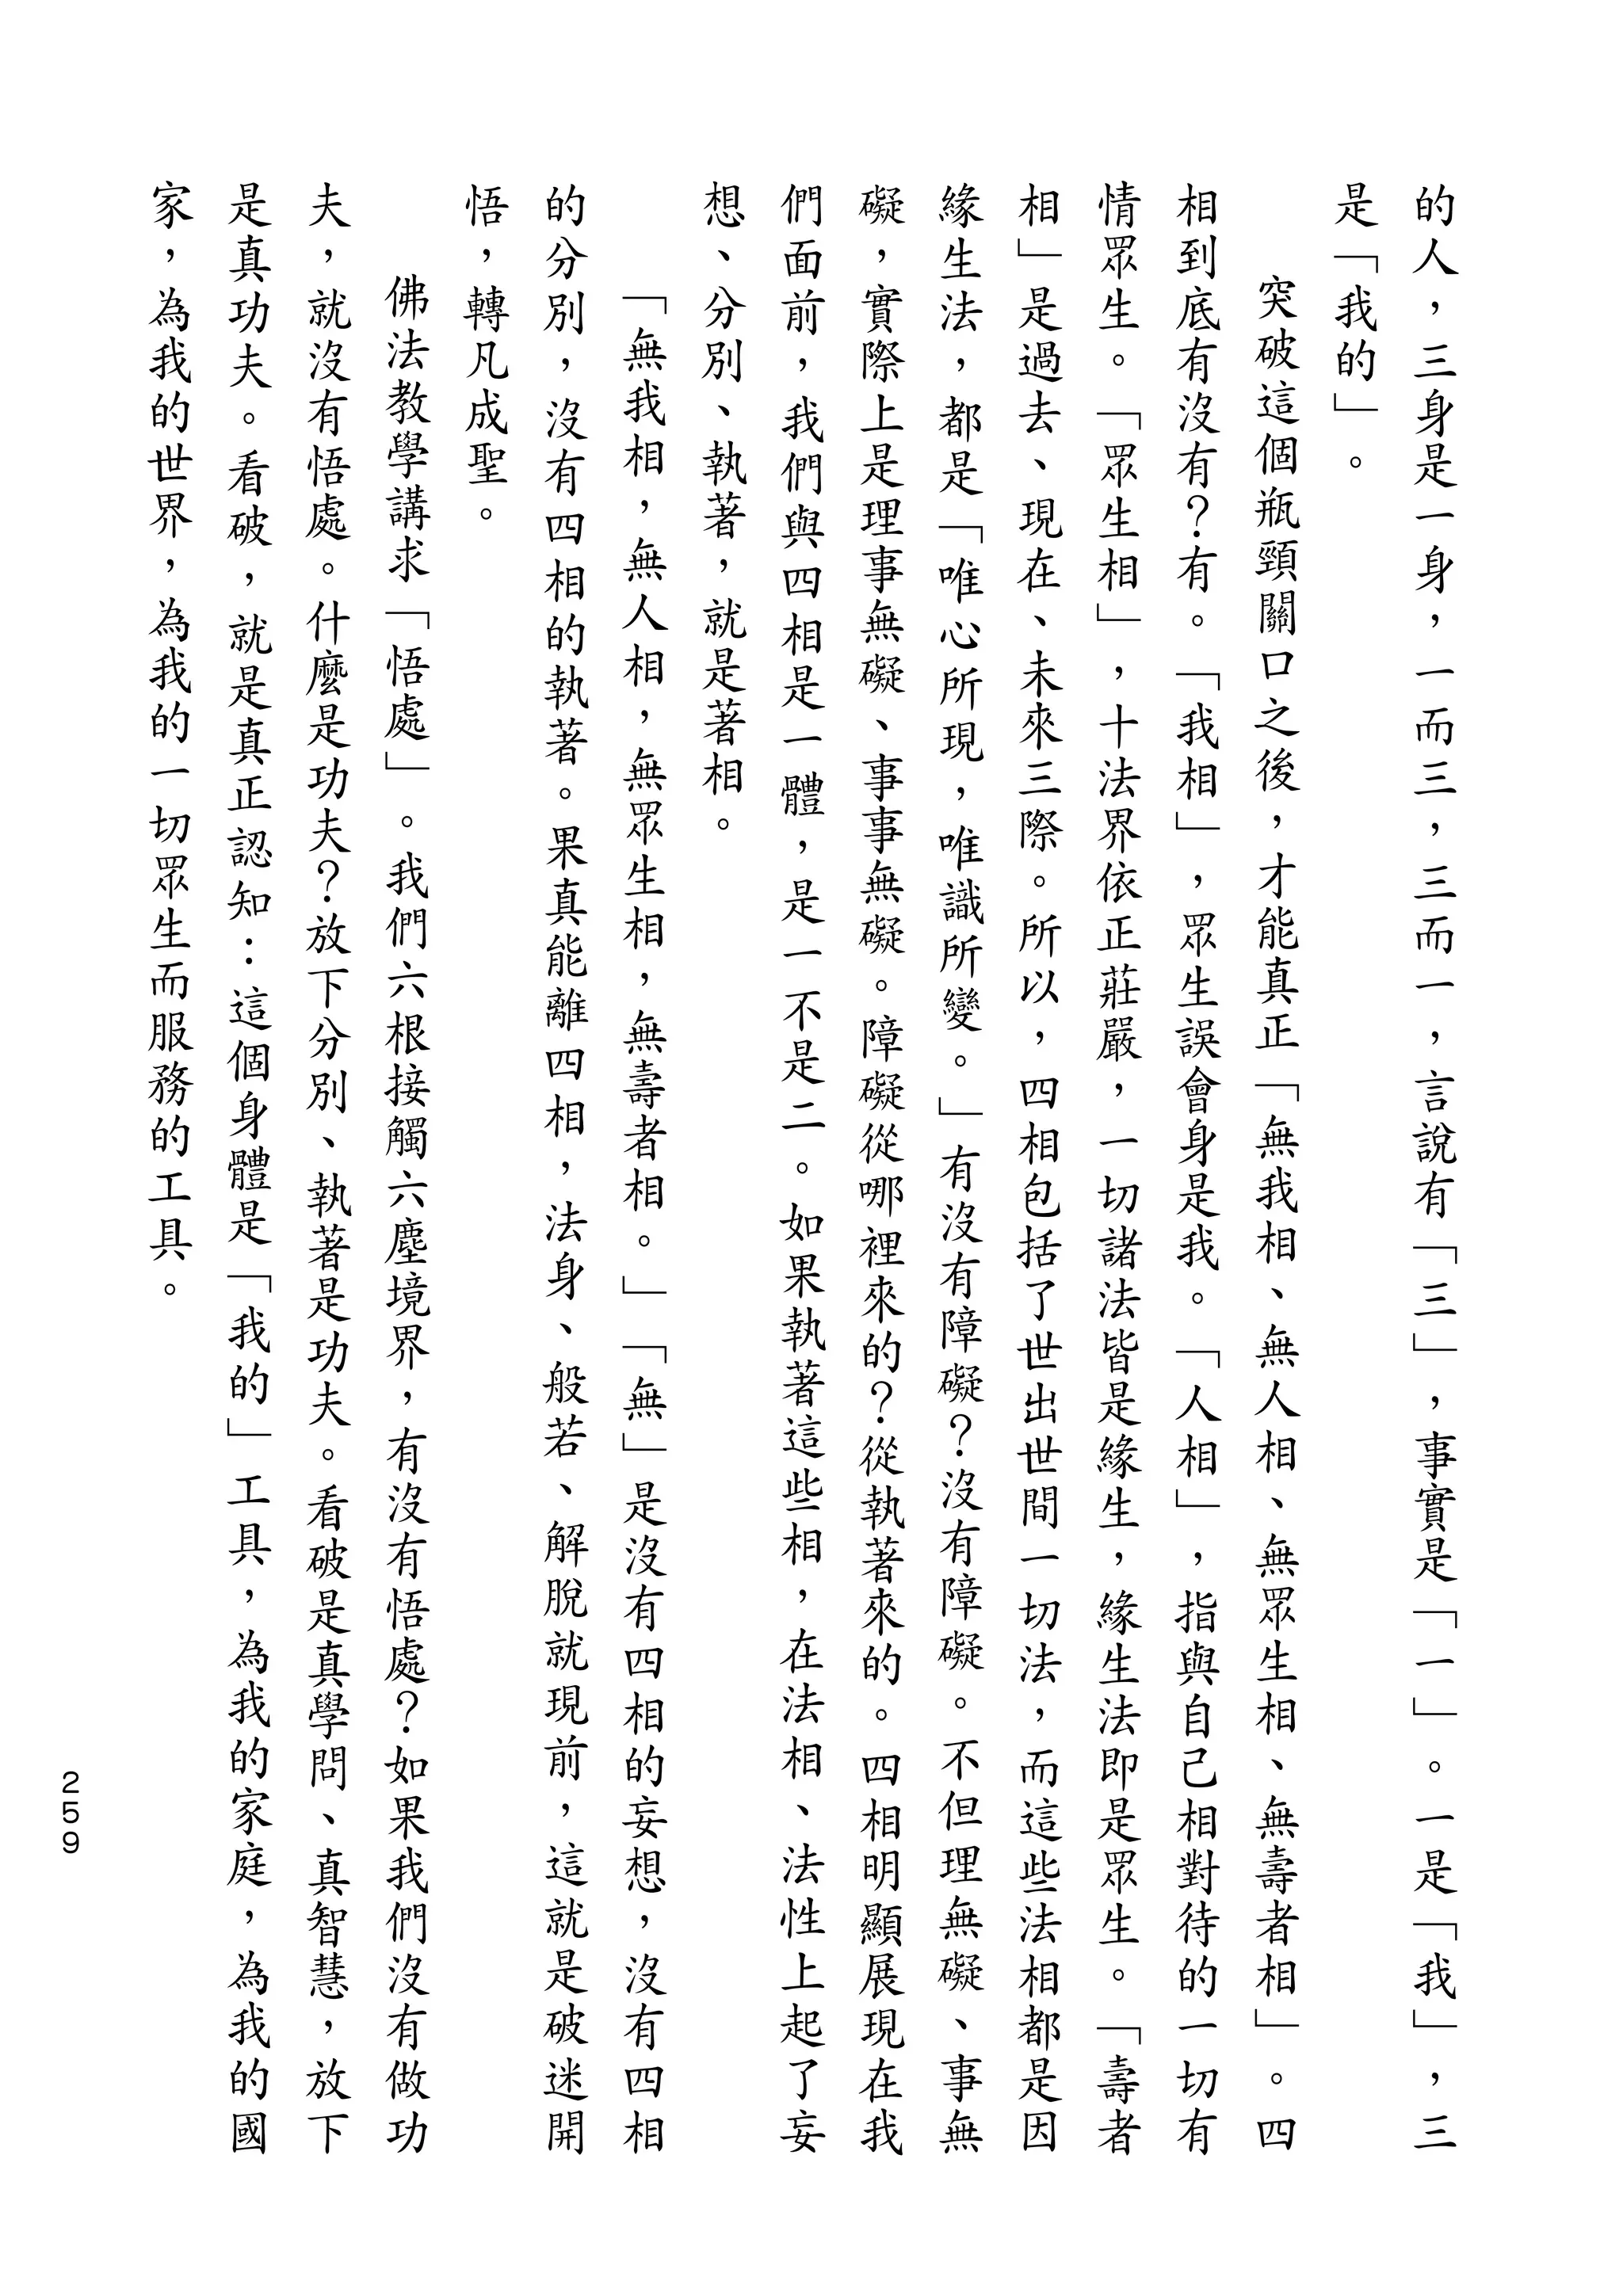 的人，三身是一身，一而三，三而一，言說有「三」，事實是「一」。一是「我」，三
是「我的」。
突破這個瓶頸關口之後，才能真正「無我相、無人相、無眾生相、無壽者相」。四
相到底有沒有？有。「我相」，眾生誤會身是我。「人相」，指與自己相對待的一切有
情眾生。「眾生相」，十法界依正莊嚴，一切諸法皆是緣生，緣生法即是眾生。「壽者
相」是過去、現在、未來三際。所以，四相包括了世出世間一切法，而這些法相都是因
緣生法，都是「唯心所現，唯識所變。」有沒有障礙？沒有障礙。不但理無礙、事無
礙，實際上是理事無礙、事事無礙。障礙從哪裡來的？從執著來的。四相明顯展現在我
們面前，我們與四相是一體，是一不是二。如果執著這些相，在法相、法性上起了妄
想、分別、執著，就是著相。
「無我相，無人相，無眾生相，無壽者相。」「無」是沒有四相的妄想，沒有四相
的分別，沒有四相的執著。果真能離四相，法身、般若、解脫就現前，這就是破迷開
悟，轉凡成聖。
佛法教學講求「悟處」。我們六根接觸六塵境界，有沒有悟處？如果我們沒有做功
夫，就沒有悟處。什麼是功夫？放下分別、執著是功夫。看破是真學問、真智慧，放下
是真功夫。看破，就是真正認知：這個身體是「我的」工具，為我的家庭，為我的國
家，為我的世界，為我的一切眾生而服務的工具。
259